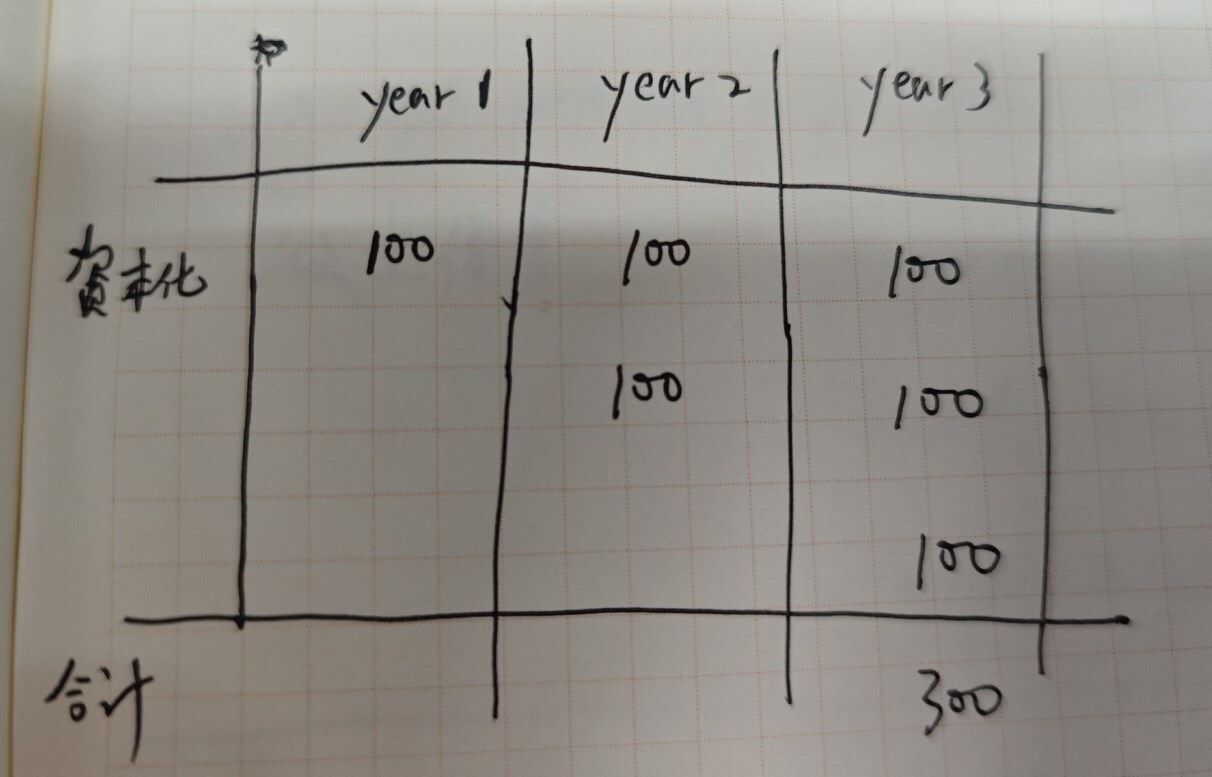 year 1 year 2 year 3
资本化 100 100 100
100 100
100
合计 300